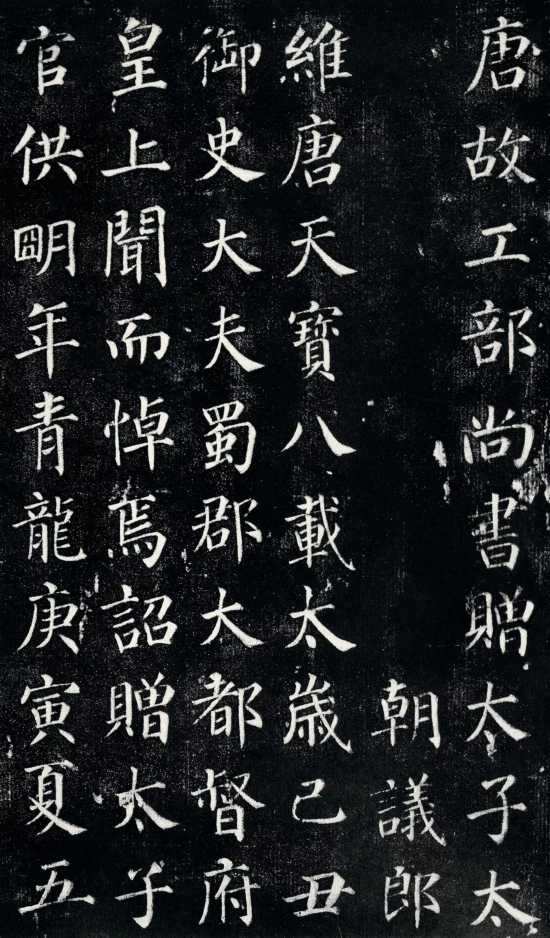 唐故工部尚書贈太子太
朝議郎
維唐天寶八載太歲己丑
御史大夫蜀郡大都督府
皇上聞而悼焉詔贈太子
官供明年青龍庚寅夏五